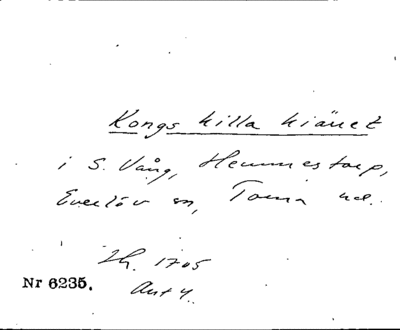 Kongs killa kiäret
i S. Vång, Hemmestorp,
Everlöv sn, Torna hd.
Lh. 1705
Nr 6235. Akt 4.